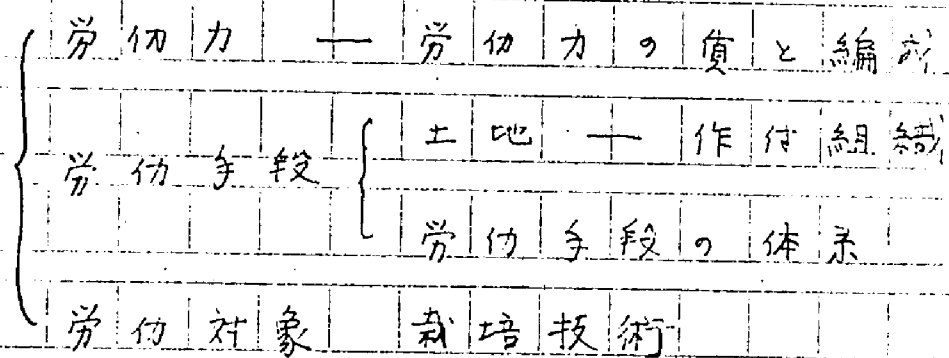 労仂力 ― 労仂力の質と編成
労仂手段
土地 ― 作付組織
労仂手段の体系
労仂対象 栽培技術